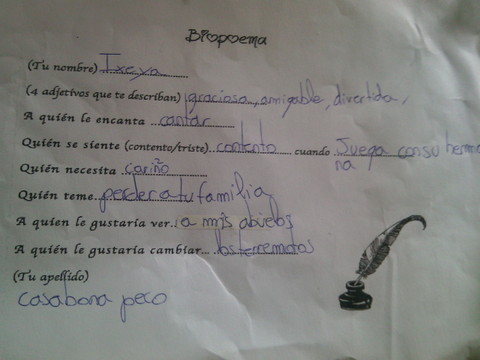 Biopoema
(Tu nombre) Ixeya
(4 adjetivos que te describan) graciosa, amigable, divertida,
A quién le encanta ...cantar
Quién se siente (contento/triste)..contento......... cuando Juega con su herma
na
Quién necesita ..cariño
Quién teme...perder a tu familia
A quien le gustaría ver..:a mis abuelos
A quién le gustaría cambiar... los terremotos
(Tu apellido)
casabona peco